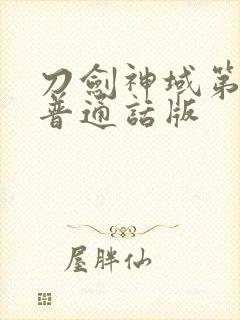 刀劍神域第
普通話版
屋胖仙